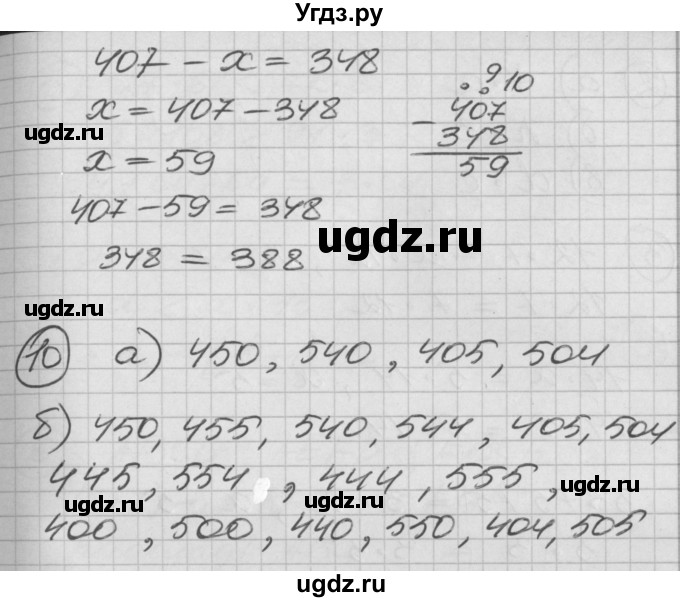 Угдз.ру
407 - x = 348
x = 407 - 348
x = 59
407 - 59 = 348
348 = 388
9 10
407
- 348
59
10 а) 450, 540, 405, 504
б) 450, 455, 540, 544, 405, 504
445, 554, 444, 555,
400, 500, 440, 550, 404, 505
ugdz.ru
ugdz.ru
ugdz.ru
ugdz.ru
ugdz.ru
ugdz.ru
ugdz.ru
ugdz.ru